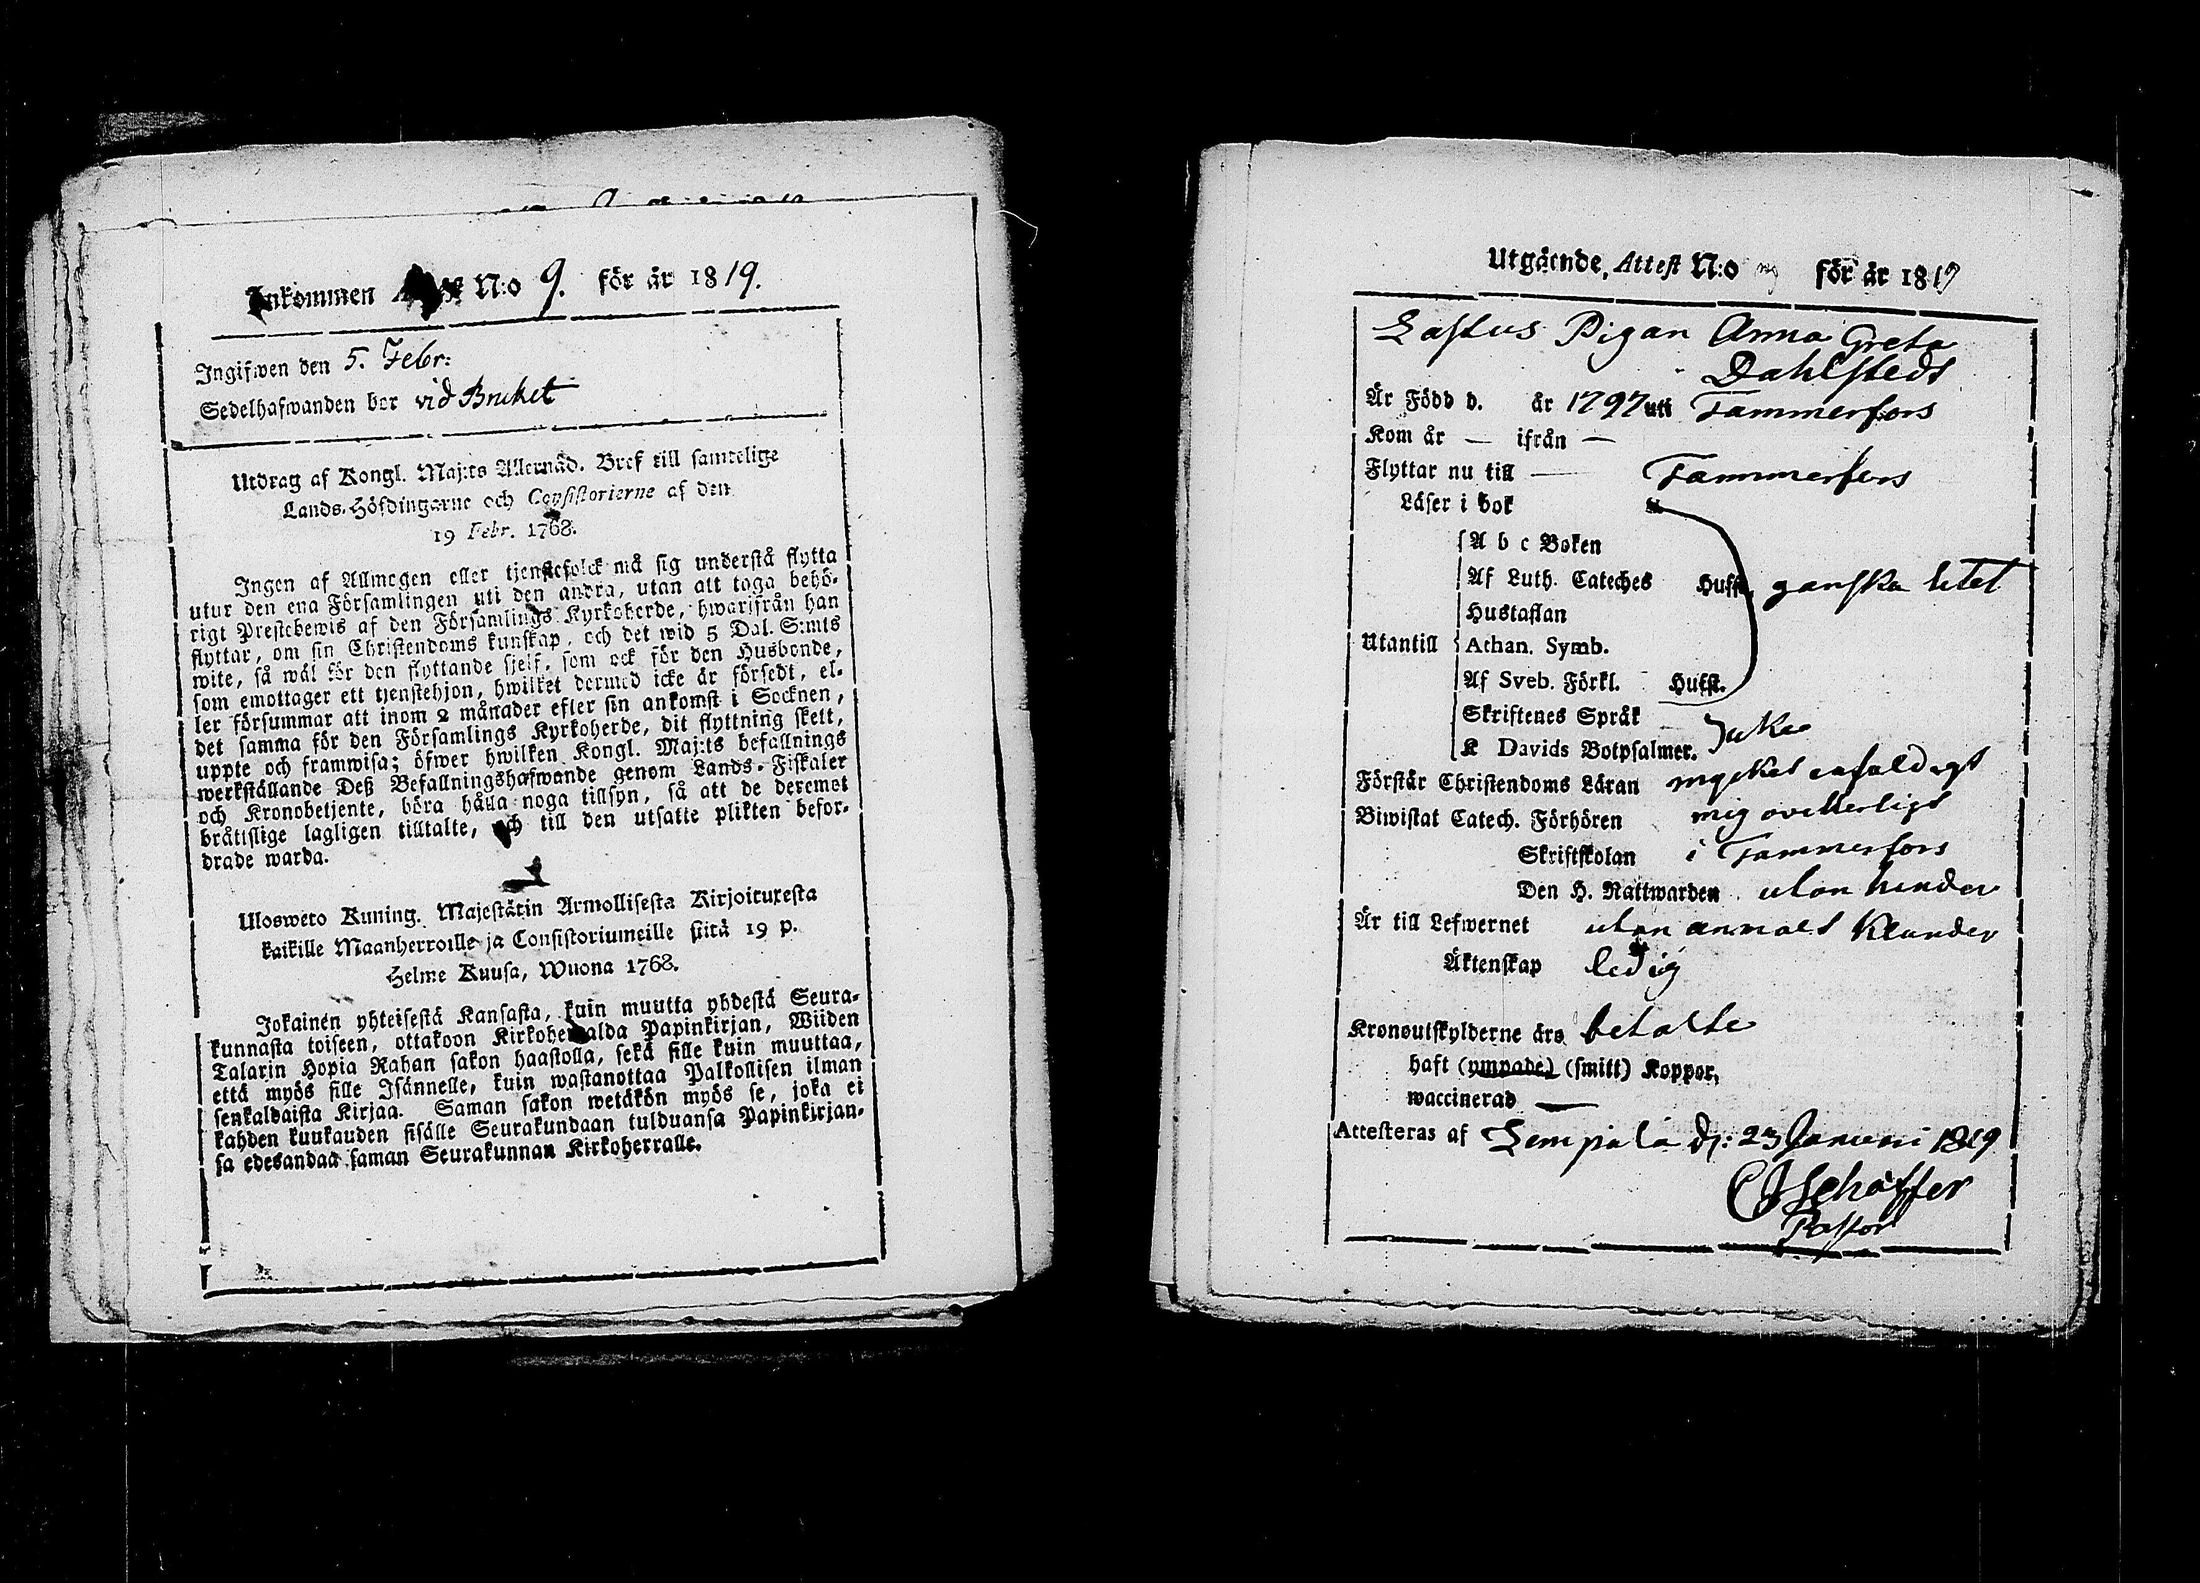 Inkommen N:o 9. för år 1819.
Ingifwen den 5. Febr:
Sedelhafwanden bor vid Bruket
Utdrag af Kongl. Maj:ts Allernåd. Bref till samtelige
Lands-Höfdingarne och Consistorierne af den
19 Febr. 1768.
Ingen af Allmogen eller tjenstefolck må sig understå flytta
utur den ena Församlingen uti den andra, utan att taga behö-
rigt Prestebewis af den Församlings Kyrkoherde, hwarifrån han
flyttar, om sin Christendoms kunskap, och det wid 5 Dal. S:mts
wite, så wäl för den flyttande sjelf, som ock för den Husbonde,
som emottager ett tjenstehjon, hwilket dermed icke är försedt, el-
ler försummar att inom 2 månader efter sin ankomst i Socknen,
det samma för den Församlings Kyrkoherde, dit flyttning skett,
uppte och framwisa; öfwer hwilken Kongl. Maj:ts befallnings
werkställande Deß Befallningshafwande genom Lands-Fiskaler
och Kronobetjente, böra hålla noga tillsyn, så att de deremot
bråtislige lagligen tilltalte, och till den utsatte plikten befor-
drade warda.
Ulosweto Kuning. Majestätin Armollisesta Kirjoituxesta
kaikille Maanherroille ja Consistoriumeille siitä 19 p.
Helme Kuusa, Wuona 1768.
Jokainen yhteisestä Kansasta, kuin muutta yhdestä Seura-
kunnasta toiseen, ottakoon Kirkoherralda Papinkirjan, Wiiden
Talarin Hopia Rahan sakon haastolla, sekä sille kuin muuttaa,
että myös sille Isännelle, kuin wastanottaa Palkollisen ilman
senkaldaista Kirjaa. Saman sakon wetäkön myös se, joka ei
kahden kuukauden sisälle Seurakundaan tulduansa Papinkirjan-
sa edesandaa saman Seurakunnan Kirkoherralle.
Utgående, Attest N:o för år 1819
Lastus Pigan Anna Greta
Dahlstedt
Är Född d. år 1797 uti Tammerfors
Kom år — ifrån —
Flyttar nu till — Tammerfors
Läser i bok
A b c Boken
Af Luth. Cateches Huffst. ganska litet
Hustaflan
Utantill Athan. Symb.
Af Sveb. Förkl. Hufst.
Skriftenes Språk
K Davids Botpsalmer.
Förstår Christendoms Läran mycket enfaldigt
Biwistat Catech. Förhören mig ovetterligt
Skriftskolan i Tammerfors
Den H. Nattwarden utan hinder
Är till Lefwernet utan annalt klander
Äktenskap ledig
Kronoutskylderne äro betalte
haft (ympade) (smitt) Koppor,
waccinerad —
Attesteras af Lempiala d: 23 Januari 1819
CJ Schäffer
Pastor